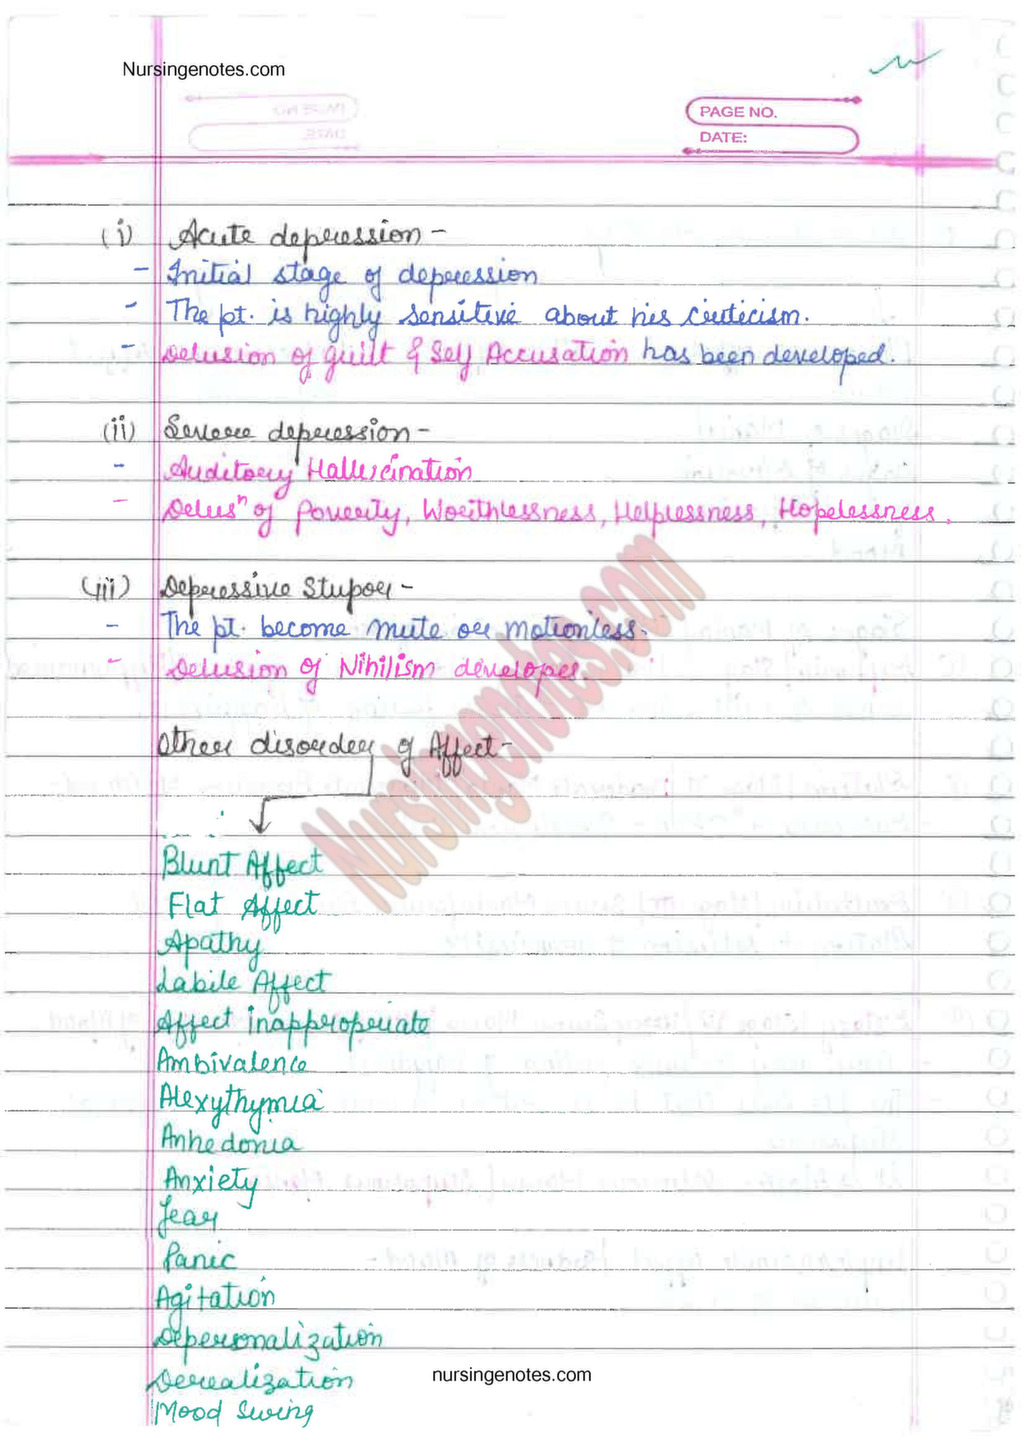 Nursingenotes.com
PAGE NO.
DATE:
(i) Acute depression -
- Initial stage of depression
- The pt. is highly sensitive about his criticism.
- Delusion of guilt & Self Accusation has been developed.
(ii) Severe depression -
- Auditory Hallucination
- Delusⁿ of Poverty, Worthlessness, Helplessness, Hopelessness.
(iii) Depressive Stupor -
- The pt. become mute or motionless.
- Delusion of Nihilism developes.
Other disorder of Affect -
Nursingenotes.com
Blunt Affect
Flat Affect
Apathy
Labile Affect
Affect inappropriate
Ambivalence
Alexythymia
Anhedonia
Anxiety
Fear
Panic
Agitation
Depersonalization
Derealization
Mood Swing
nursingenotes.com